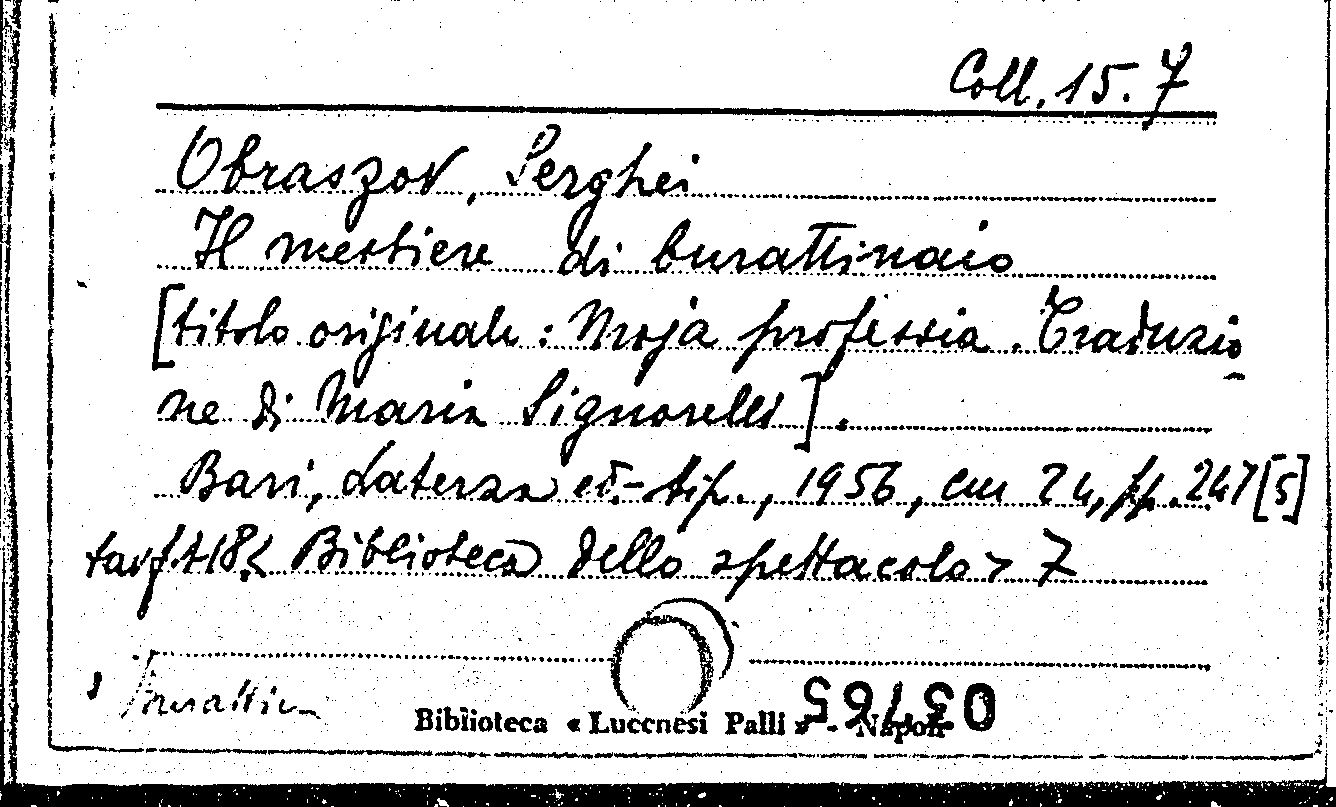 Coll. 15. 7
Obraszov, Serghei
Il mestiere di burattinaio
[titolo originale: Moja professia. Traduzio
ne di Maria Signorelli].
Bari, Laterza ed.-tip., 1956, cm 24, pp. 247 [5]
tavf.t.18. < Biblioteca dello spettacolo > 7
Burattini
Biblioteca « Lucchesi Palli » - Napoli